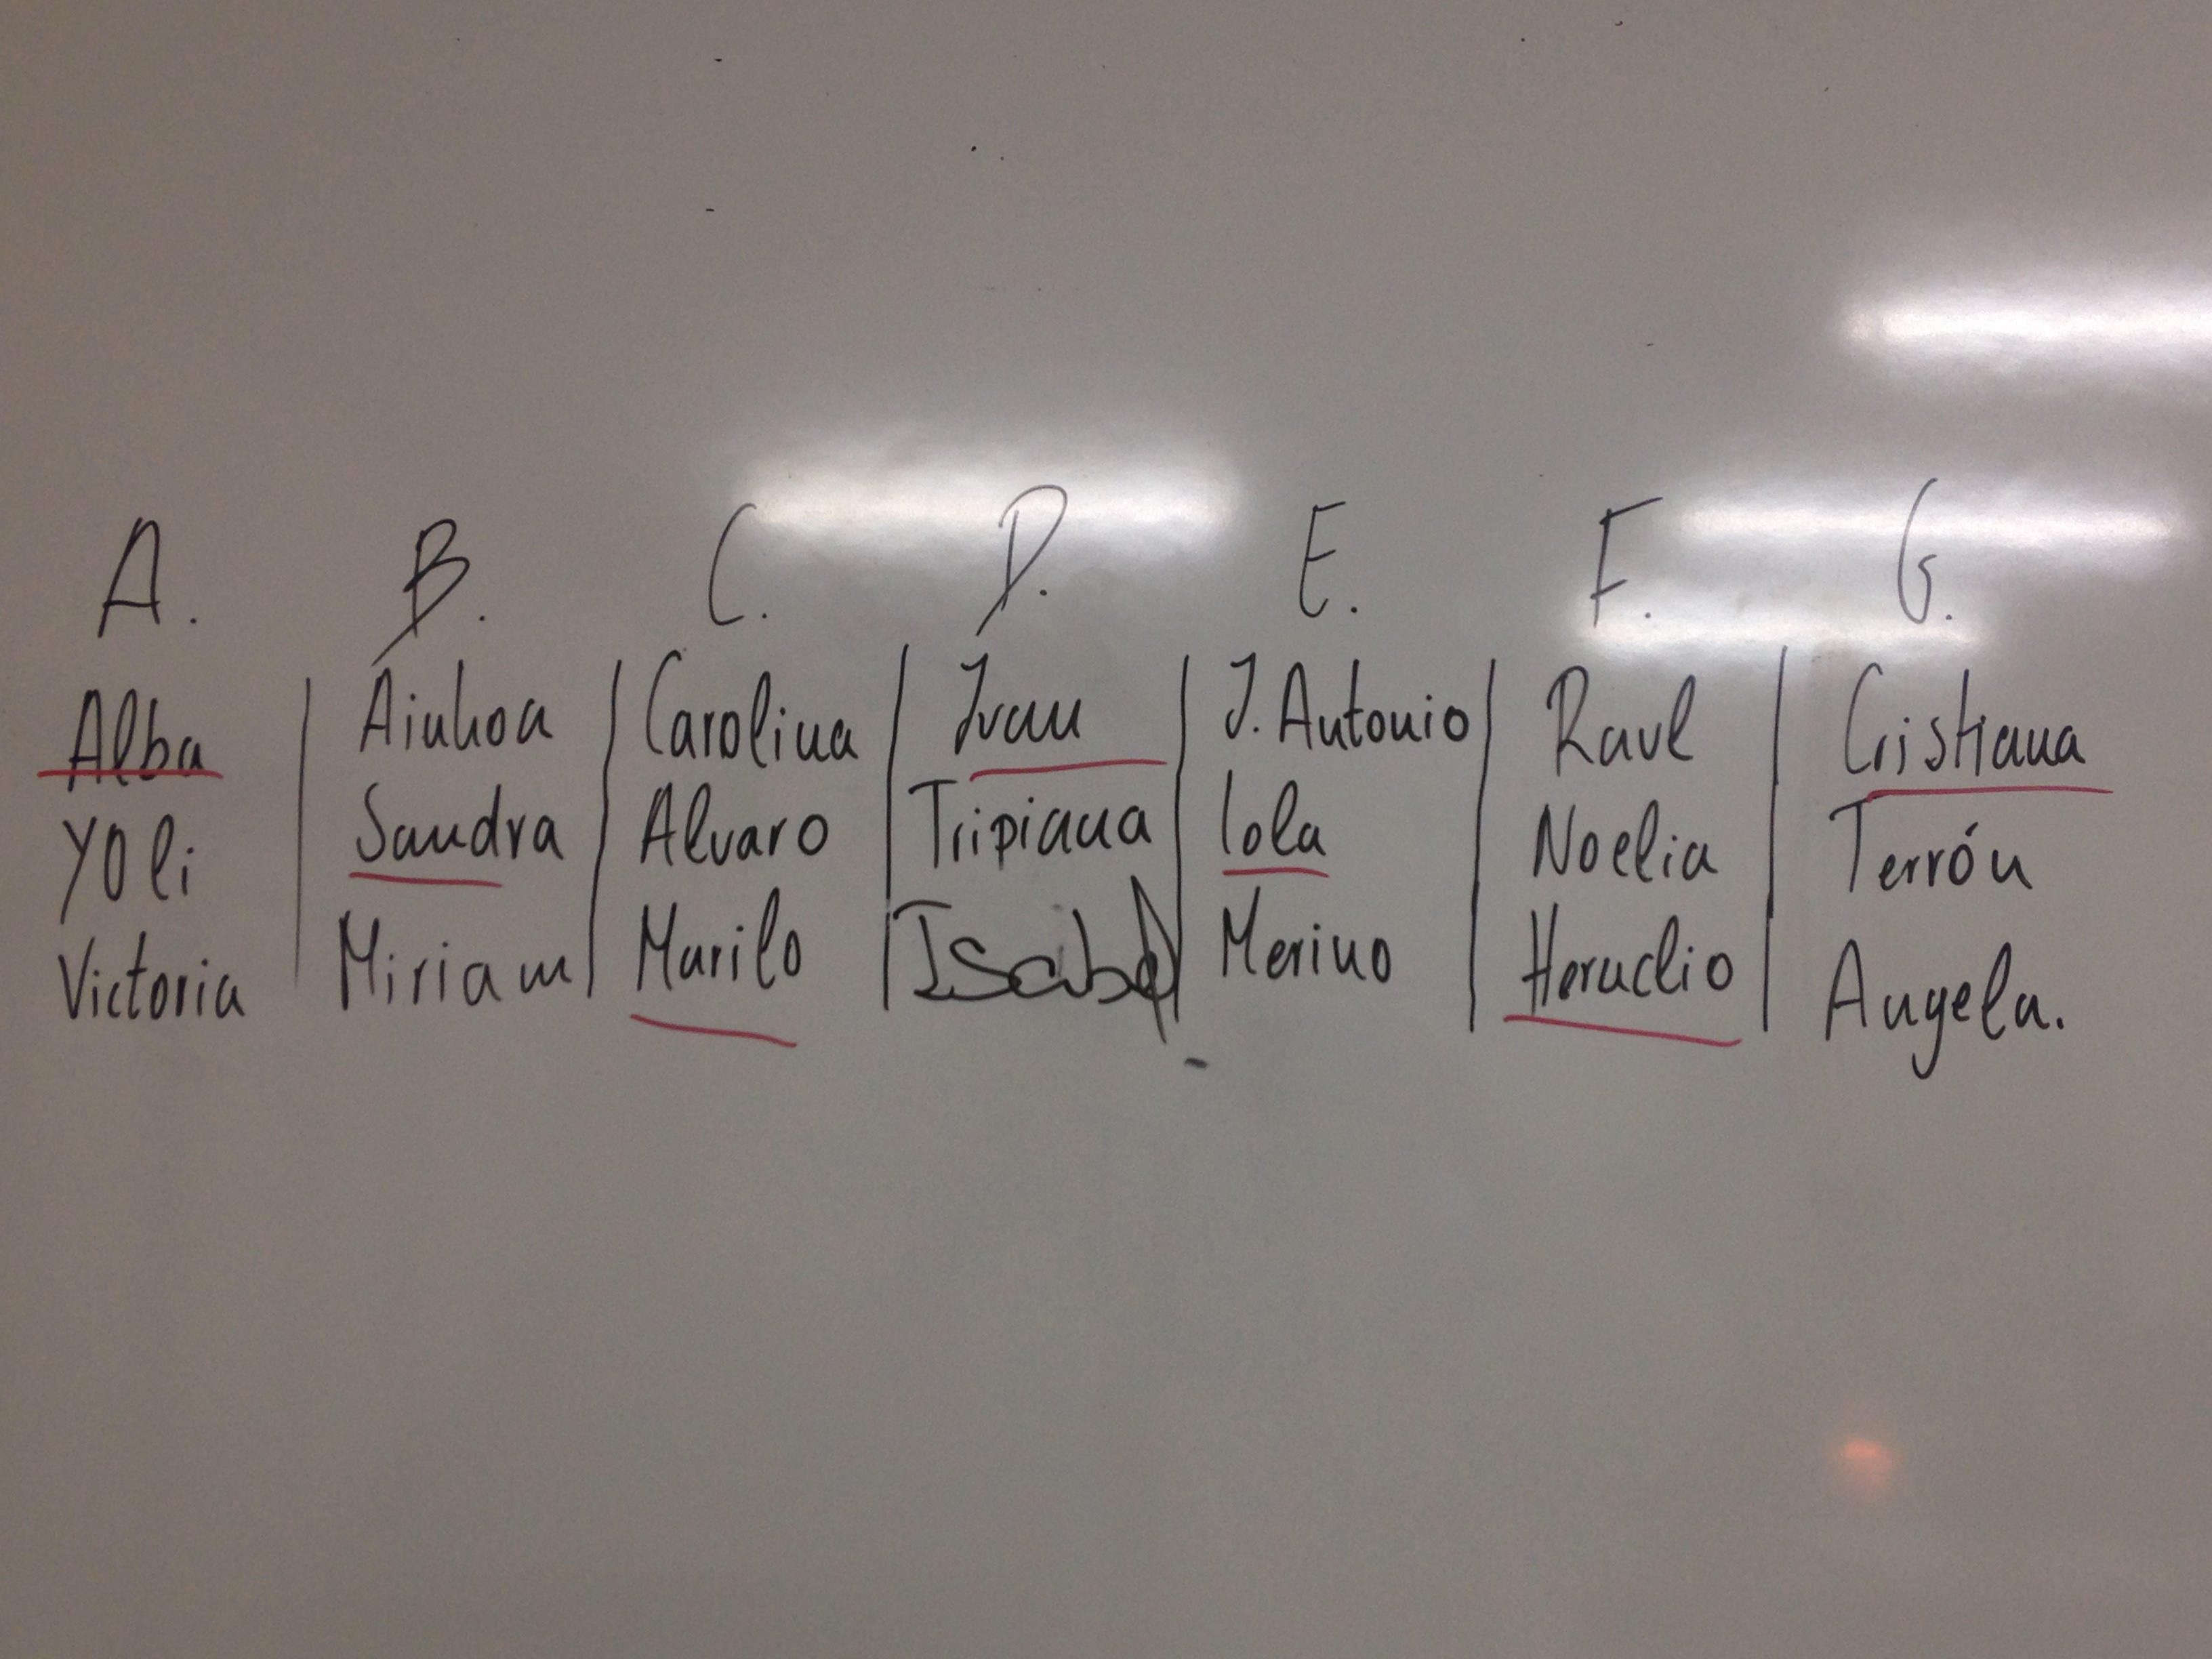 A. B. C. D. E. F. G.
Alba Ainhoa Carolina Ivan J. Antonio Raul Cristiana
Yoli Sandra Alvaro Tripiana Lola Noelia Terrón
Victoria Miriam Murilo Isabel Merino Heraclio Angela.